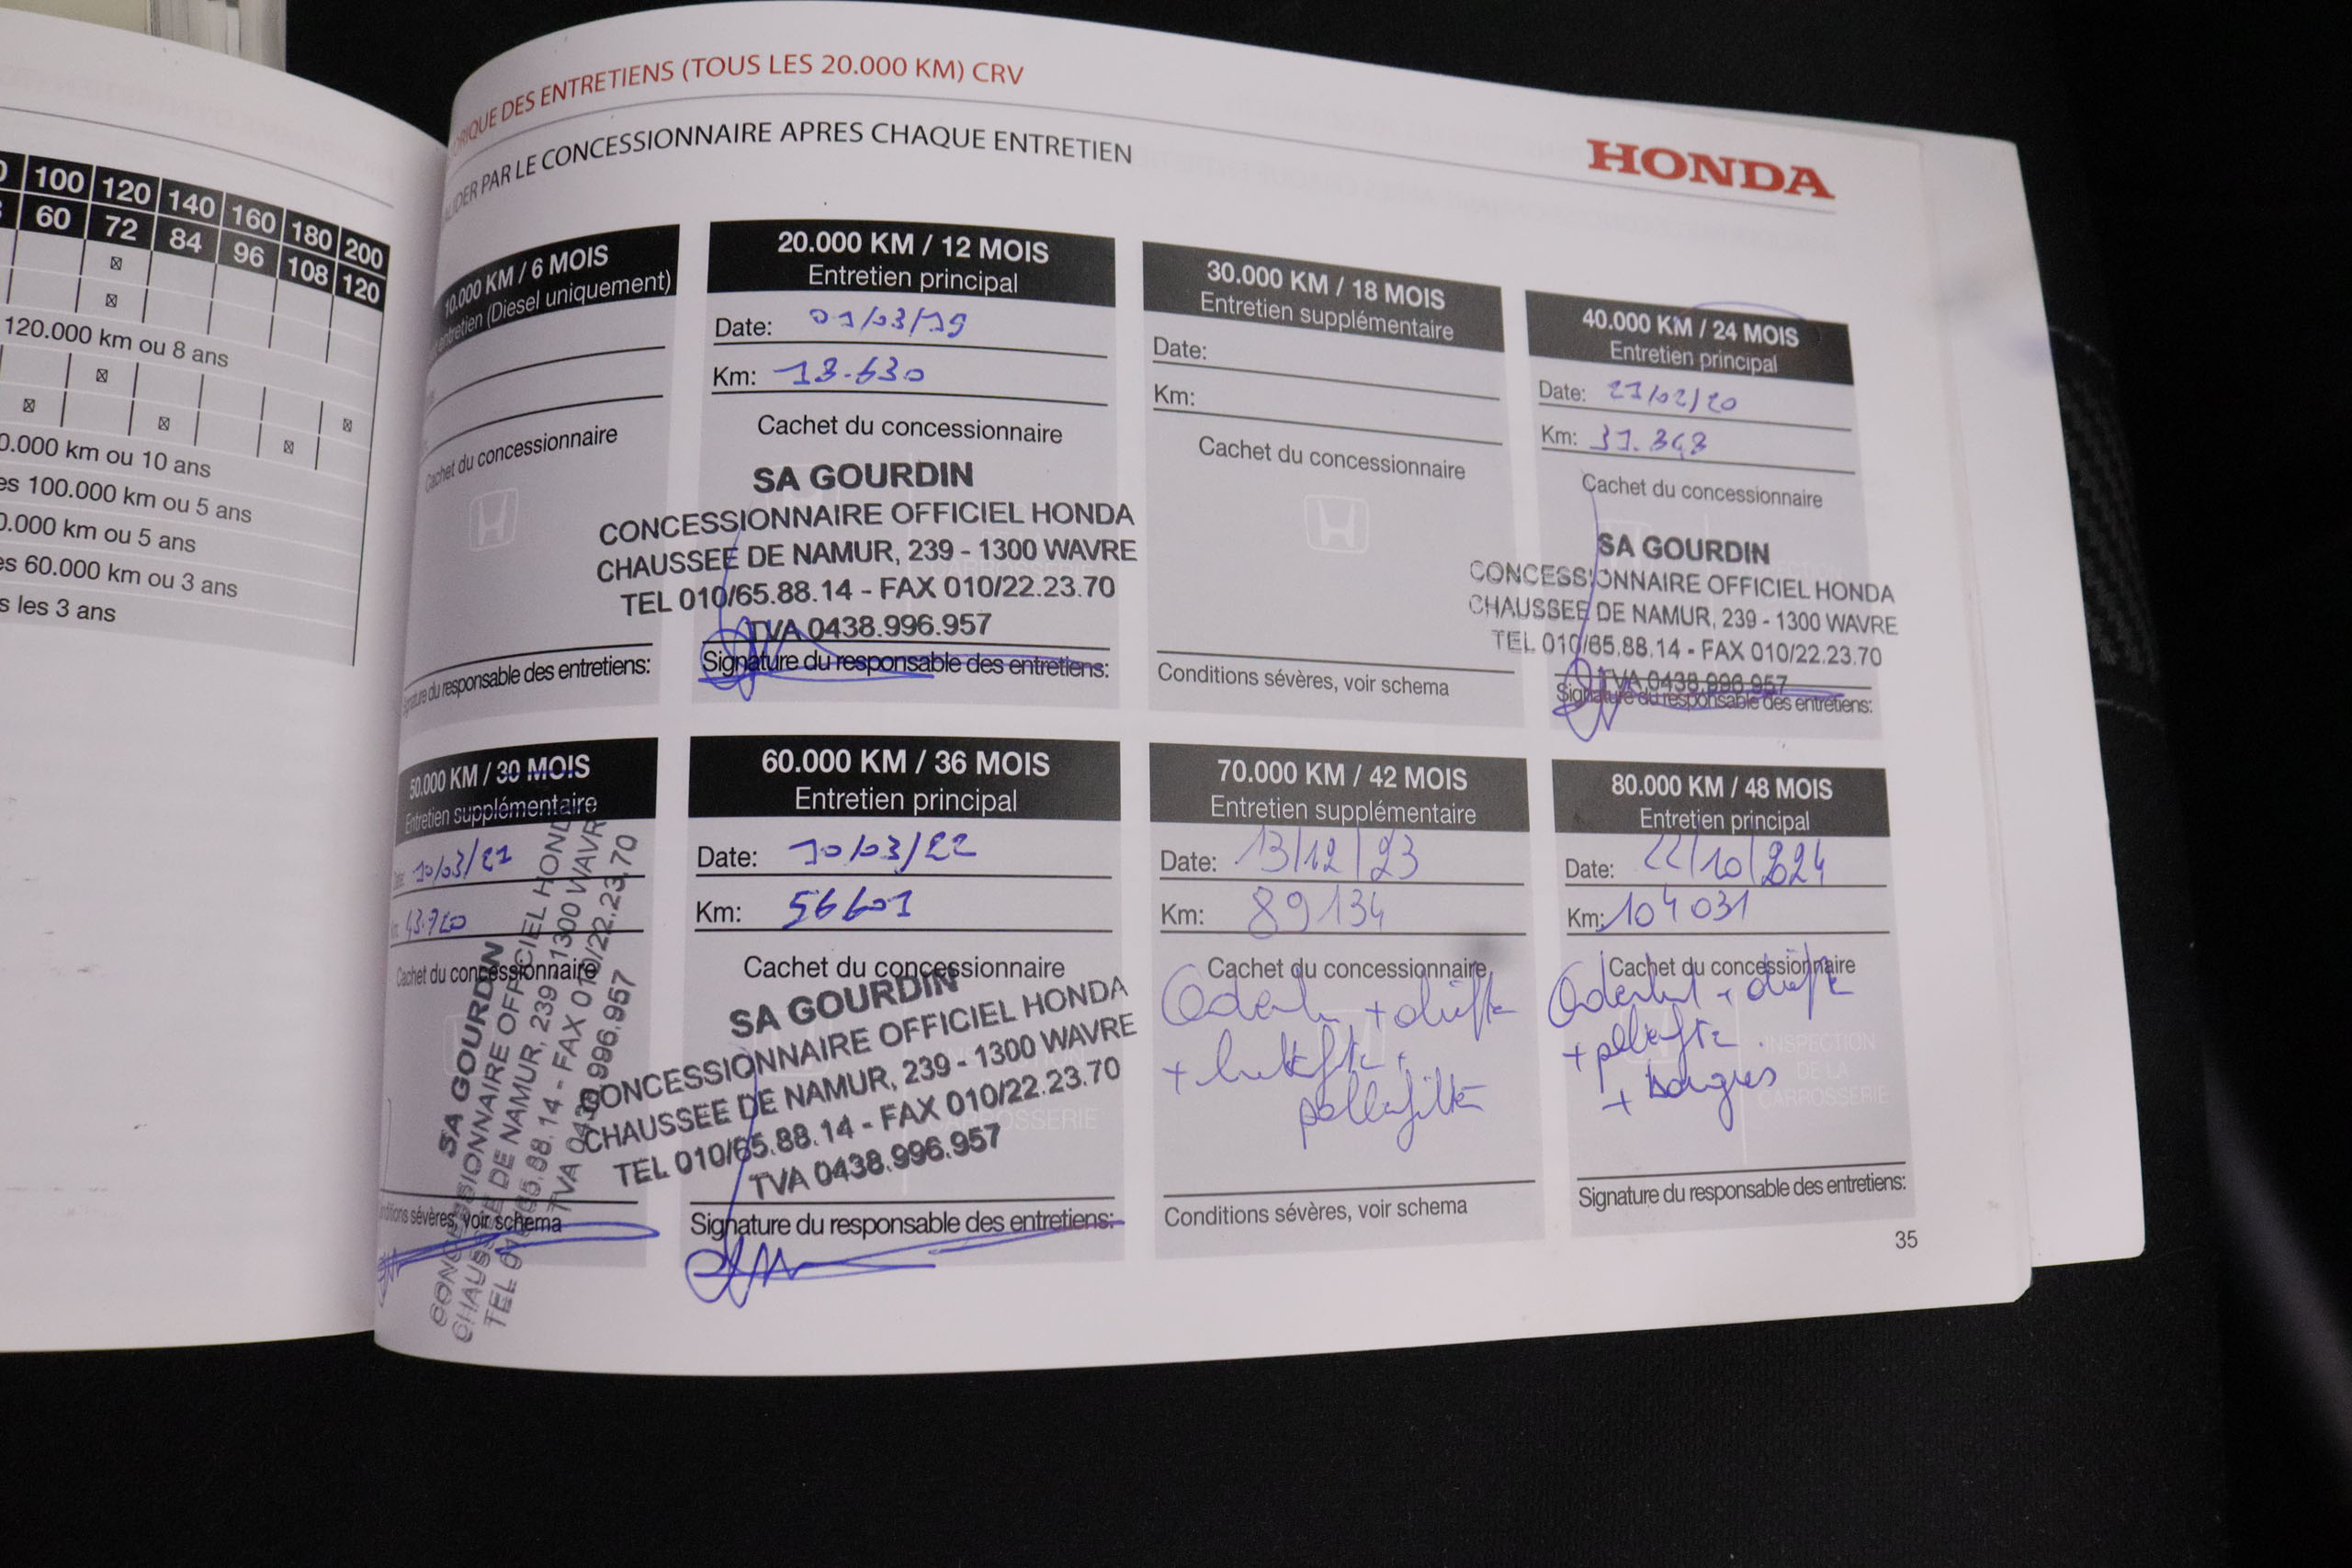 100 120 140 160 180 200
60 72 84 96 108 120
120.000 km ou 8 ans
0.000 km ou 10 ans
es 100.000 km ou 5 ans
0.000 km ou 5 ans
es 60.000 km ou 3 ans
s les 3 ans
ORIQUE DES ENTRETIENS (TOUS LES 20.000 KM) CRV
ALIDER PAR LE CONCESSIONNAIRE APRES CHAQUE ENTRETIEN
HONDA
10.000 KM / 6 MOIS
entretien (Diesel uniquement)
Cachet du concessionnaire
Signature du responsable des entretiens:
20.000 KM / 12 MOIS
Entretien principal
Date: 01/03/19
Km: 13.630
Cachet du concessionnaire
SA GOURDIN
CONCESSIONNAIRE OFFICIEL HONDA
CHAUSSEE DE NAMUR, 239 - 1300 WAVRE
TEL 010/65.88.14 - FAX 010/22.23.70
TVA 0438.996.957
Signature du responsable des entretiens:
30.000 KM / 18 MOIS
Entretien supplémentaire
Date:
Km:
Cachet du concessionnaire
Conditions sévères, voir schema
40.000 KM / 24 MOIS
Entretien principal
Date: 21/02/20
Km: 31.348
Cachet du concessionnaire
SA GOURDIN
CONCESSIONNAIRE OFFICIEL HONDA
CHAUSSEE DE NAMUR, 239 - 1300 WAVRE
TEL 010/65.88.14 - FAX 010/22.23.70
TVA 0438.996.957
Signature du responsable des entretiens:
50.000 KM / 30 MOIS
Entretien supplémentaire
10/03/21
43.920
Cachet du concessionnaire
SA GOURDIN
CONCESSIONNAIRE OFFICIEL HONDA
CHAUSSEE DE NAMUR, 239 - 1300 WAVRE
TEL 010/65.88.14 - FAX 010/22.23.70
TVA 0438.996.957
Conditions sévères, voir schema
60.000 KM / 36 MOIS
Entretien principal
Date: 10/03/22
Km: 56601
Cachet du concessionnaire
SA GOURDIN
CONCESSIONNAIRE OFFICIEL HONDA
CHAUSSEE DE NAMUR, 239 - 1300 WAVRE
TEL 010/65.88.14 - FAX 010/22.23.70
TVA 0438.996.957
Signature du responsable des entretiens:
70.000 KM / 42 MOIS
Entretien supplémentaire
Date: 13/12/23
Km: 89134
Cachet du concessionnaire
Conditions sévères, voir schema
80.000 KM / 48 MOIS
Entretien principal
Date: 22/10/2024
Km: 104031
Cachet du concessionnaire
INSPECTION
DE LA
CARROSSERIE
Signature du responsable des entretiens:
35